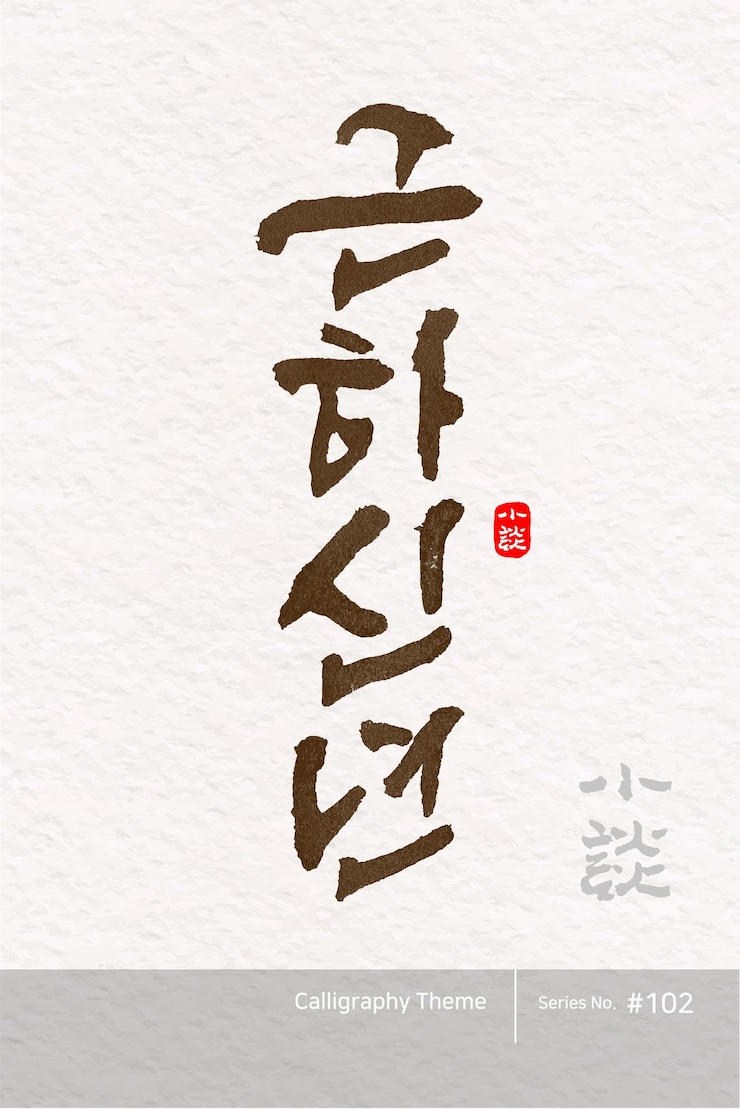 근하신년
小談
小談
Calligraphy Theme
Series No. #102